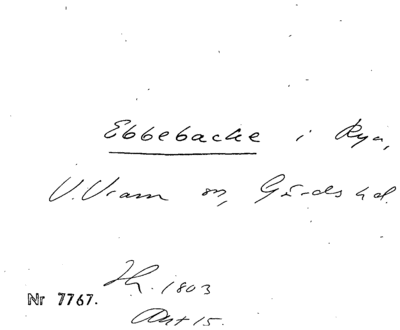 Ebbebacke i Rya,
V. Vram sn, Gärds hd.
Nr 7767.
1803
Akt 15.